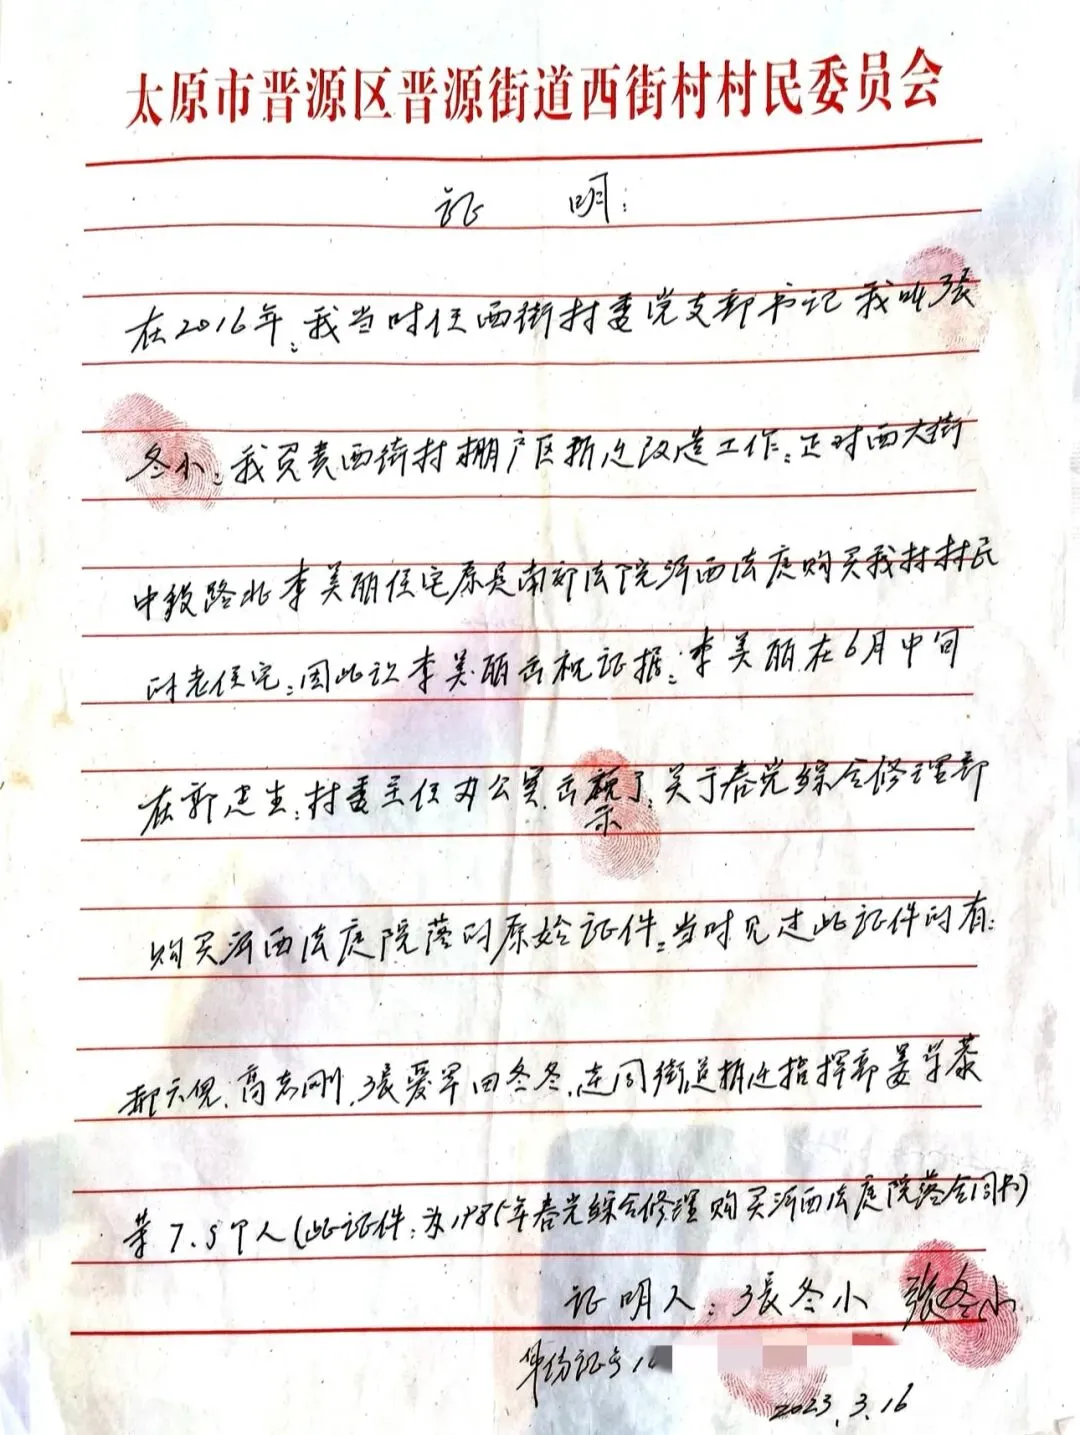 太原市晋源区晋源街道西街村村民委员会
证 明:
在2016年:我当时任西街村委党支部书记我叫张
冬小:我负责西街村棚户区拆迁改造工作:正对西大街
中段路北李美丽住宅原是南郊法院河西法庭购买我村村民
的老住宅:因此让李美丽出视证据:李美丽在6月中旬
在郭忠生:村委主任办公室出示了:关于春光综合修理部
购买河西法庭院落的原始证件:当时见过此证件的有:
郝天倪、高志刚、张爱军田冬冬、连同街道拆迁指挥部姜学恭
等7.8个人(此证件:为1985年春光综合修理购买河西法庭院落合同书)
证明人:張冬小 張冬小
身份证号1
2023.3.16